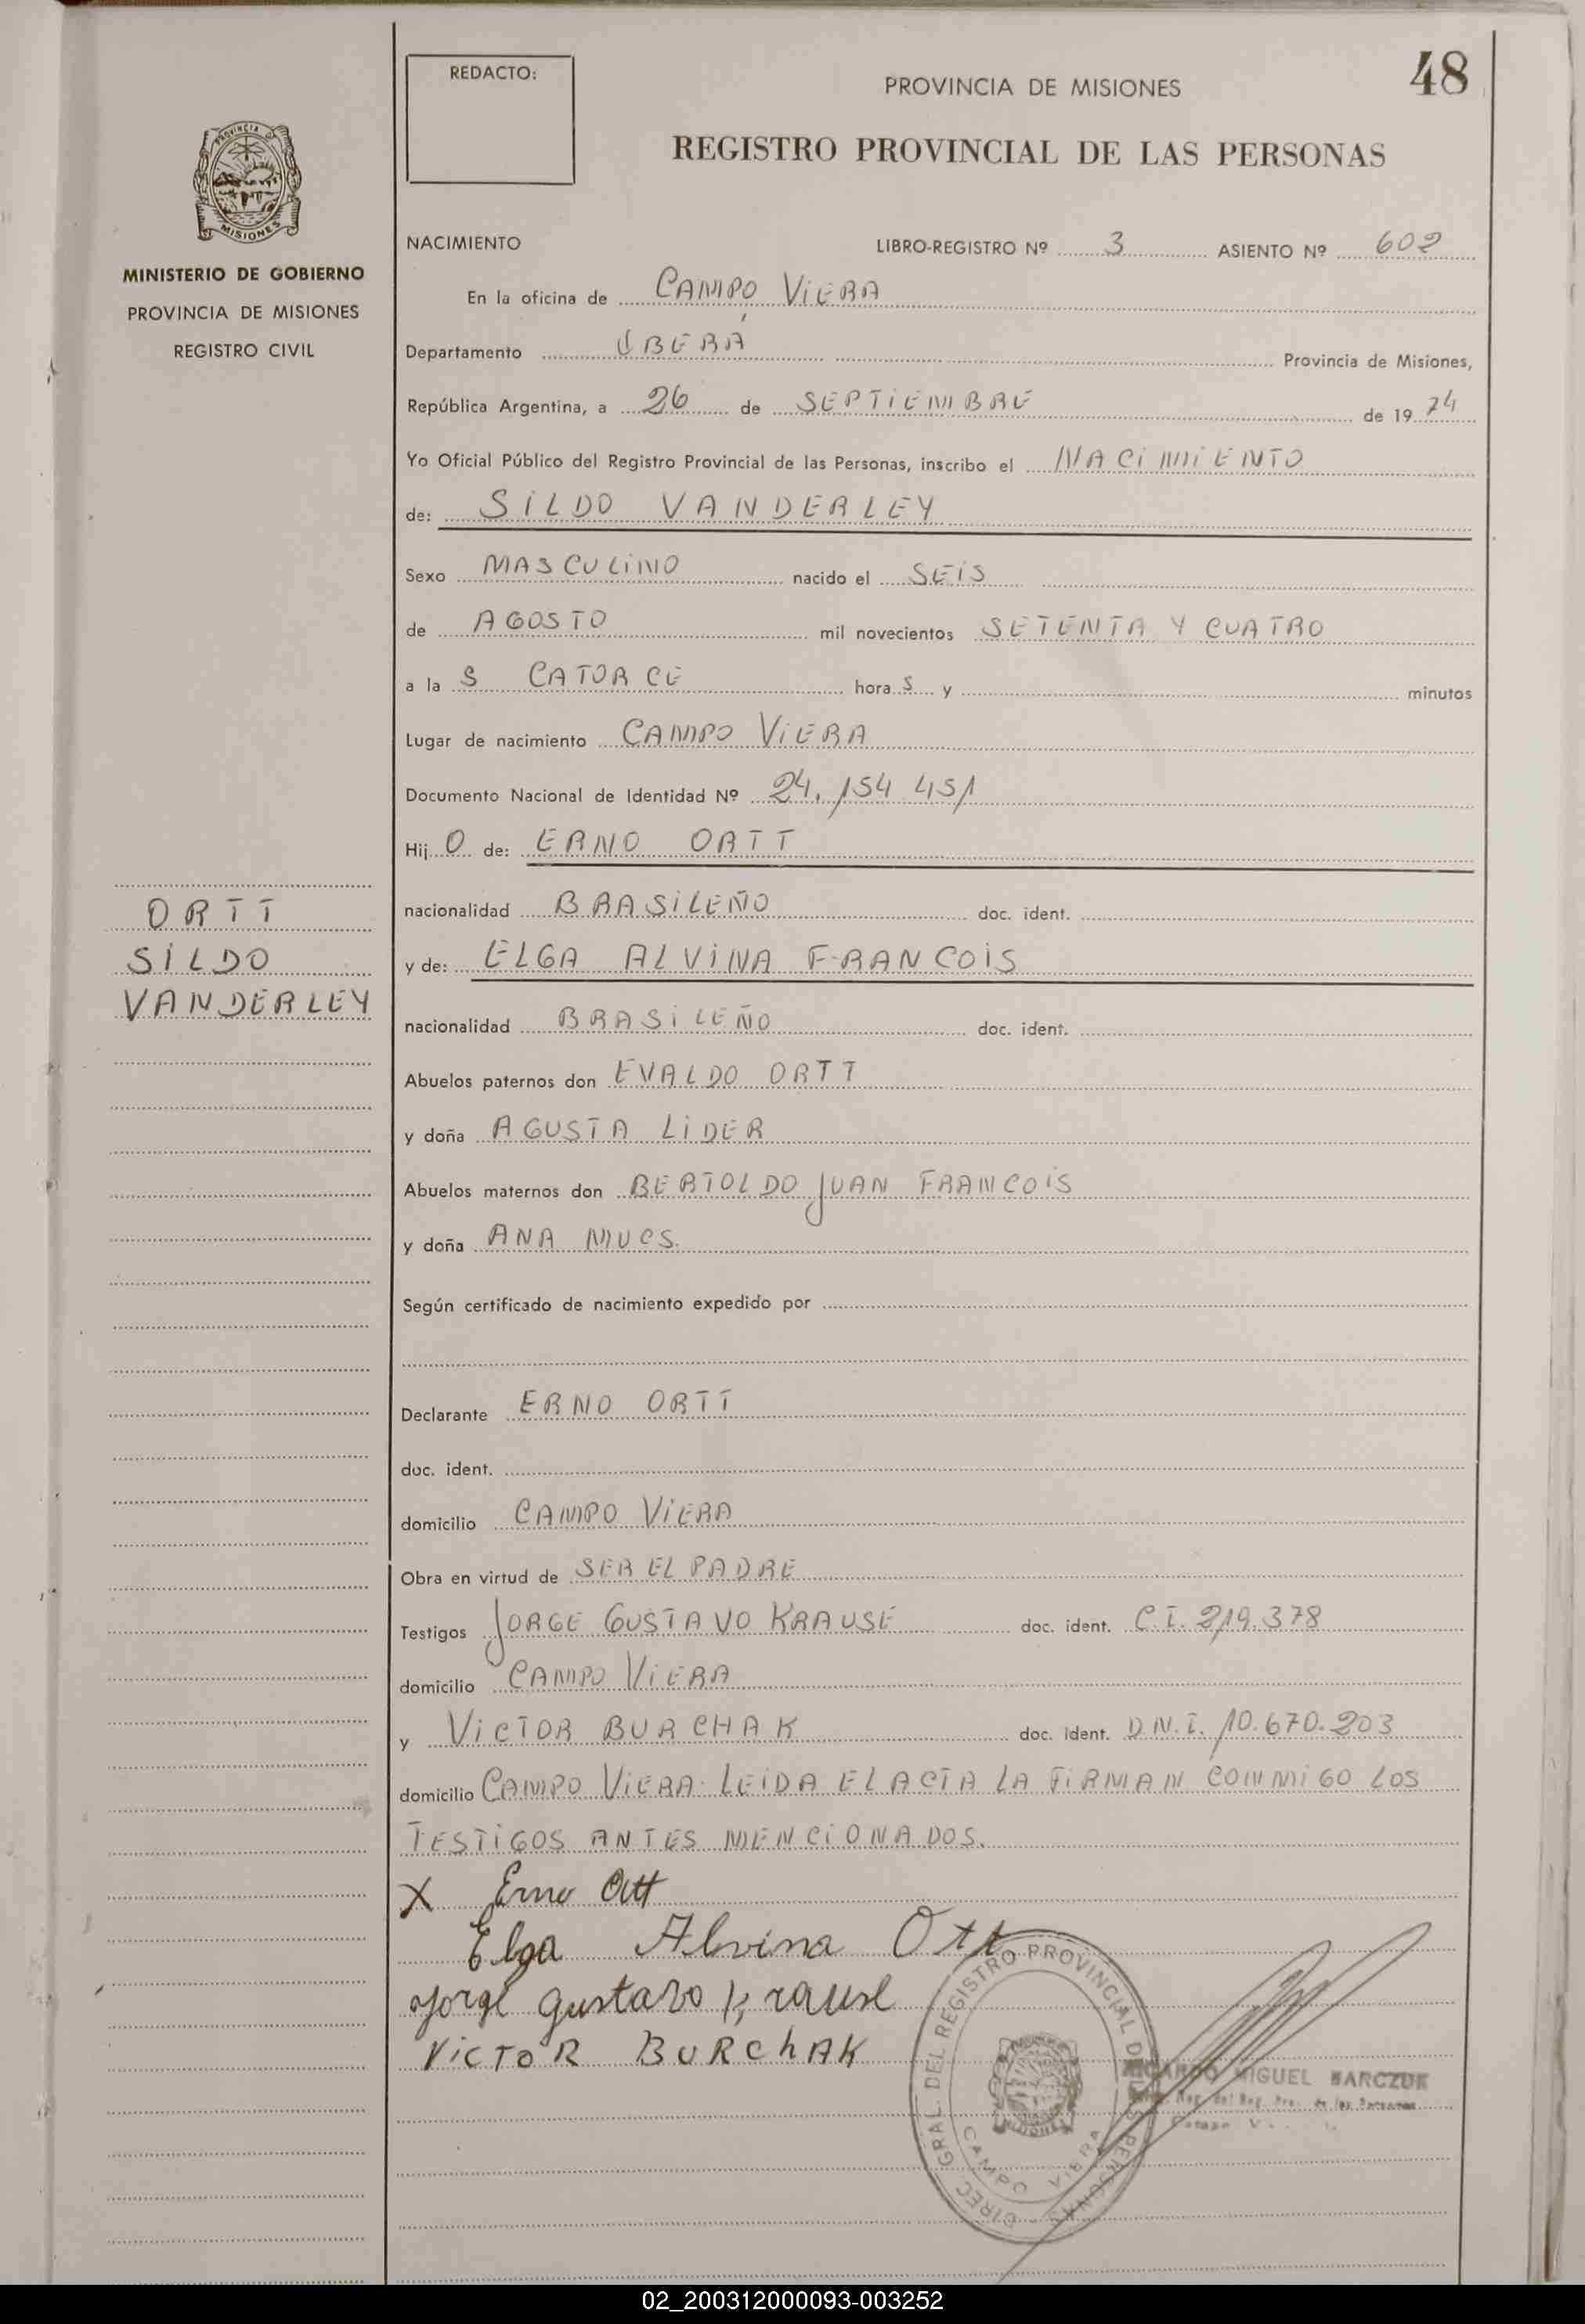 REDACTO:
PROVINCIA DE MISIONES
48
REGISTRO PROVINCIAL DE LAS PERSONAS
PROVINCIA D MISIONES
MINISTERIO DE GOBIERNO
PROVINCIA DE MISIONES
REGISTRO CIVIL
NACIMIENTO LIBRO-REGISTRO Nº 3 ASIENTO Nº 602
En la oficina de CAMPO VIERA
Departamento OBERÁ Provincia de Misiones,
República Argentina, a 26 de SEPTIEMBRE de 19 74
Yo Oficial Público del Registro Provincial de las Personas, inscribo el NACIMIENTO
de: SILDO VANDERLEY
Sexo MASCULINO nacido el SEIS
de AGOSTO mil novecientos SETENTA Y CUATRO
a la S CATORCE hora S y minutos
Lugar de nacimiento CAMPO VIERA
Documento Nacional de Identidad Nº 24.154.451
Hij O de: ERNO ORTT
nacionalidad BRASILEÑO doc. ident.
y de: ELGA ALVINA FRANCOIS
nacionalidad BRASILEÑO doc. ident.
ORTT
SILDO
VANDERLEY
Abuelos paternos don EVALDO ORTT
y doña AGUSTA LIDER
Abuelos maternos don BERTOLDO JUAN FRANCOIS
y doña ANA MUCS.
Según certificado de nacimiento expedido por
Declarante ERNO ORTT
doc. ident.
domicilio CAMPO VIERA
Obra en virtud de SER EL PADRE
Testigos JORGE GUSTAVO KRAUSE doc. ident. C.I. 219.378
domicilio CAMPO VIERA
y VICTOR BURCHAK doc. ident. D.N.I. 10.670.203
domicilio CAMPO VIERA. LEIDA EL ACTA LA FIRMAN CONMIGO LOS
TESTIGOS ANTES MENCIONADOS.
X Erno Ott
Elga Alvina Ott
Jorge Gustavo Krause
VICTOR BURChAK
DIREC. GRAL. DEL REGISTRO PROVINCIAL DE LAS PERSONAS
CAMPO VIERA
RICARDO MIGUEL BARCZUK
del Reg. Pro. de las Personas
Campo V
02_200312000093-003252